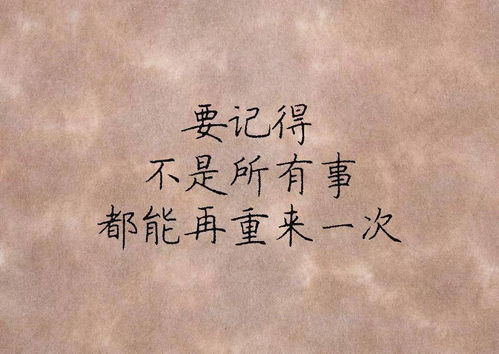 要记得
不是所有事
都能再重来一次